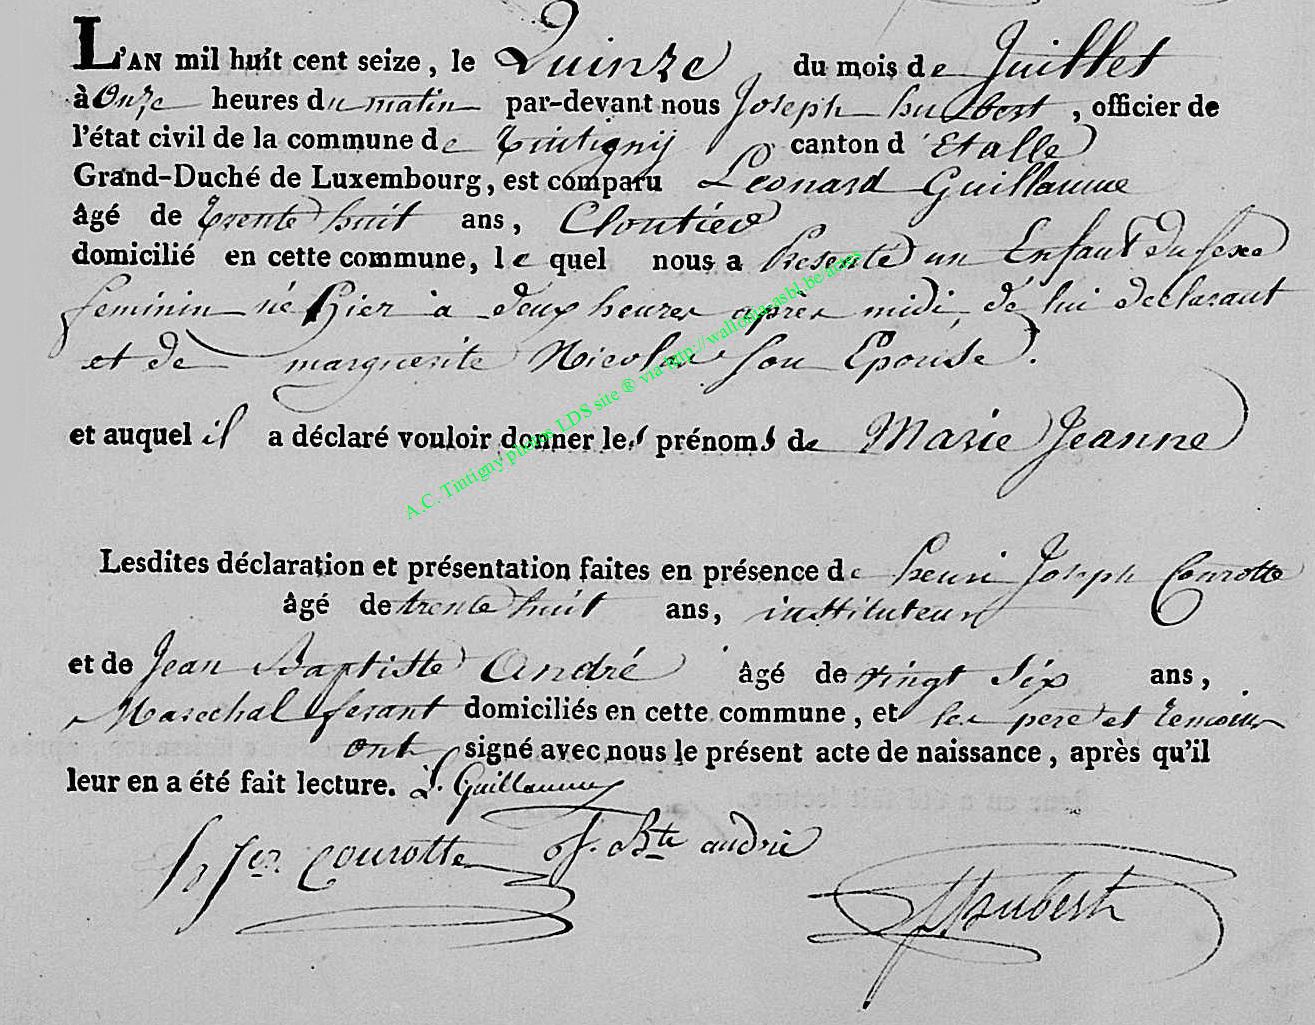 L'AN mil huit cent seize, le Quinze du mois de Juillet
à Onze heures du matin par-devant nous Joseph hubert, officier de
l'état civil de la commune de Tintigny canton d'Etalle
Grand-Duché de Luxembourg, est comparu Leonard Guillaume
âgé de trente huit ans, Cloutier
domicilié en cette commune, le quel nous a Presenté un Enfant du sexe
feminin né hier à deux heures après midi, de lui declarant
et de marguerite Nicolas son Epouse.
et auquel il a déclaré vouloir donner les prénoms de Marie Jeanne
Lesdites déclaration et présentation faites en présence de henri Joseph Courotte
âgé de trente huit ans, instituteur
et de Jean Baptiste André âgé de vingt six ans,
Marechal ferant domiciliés en cette commune, et les pere et temoins
ont signé avec nous le présent acte de naissance, après qu'il
leur en a été fait lecture. L. Guillaume
Courotte J. Bte andré
Hubert
A.C. Tintigny photos LDS site ® via http://wallonia-asbl.be/actes